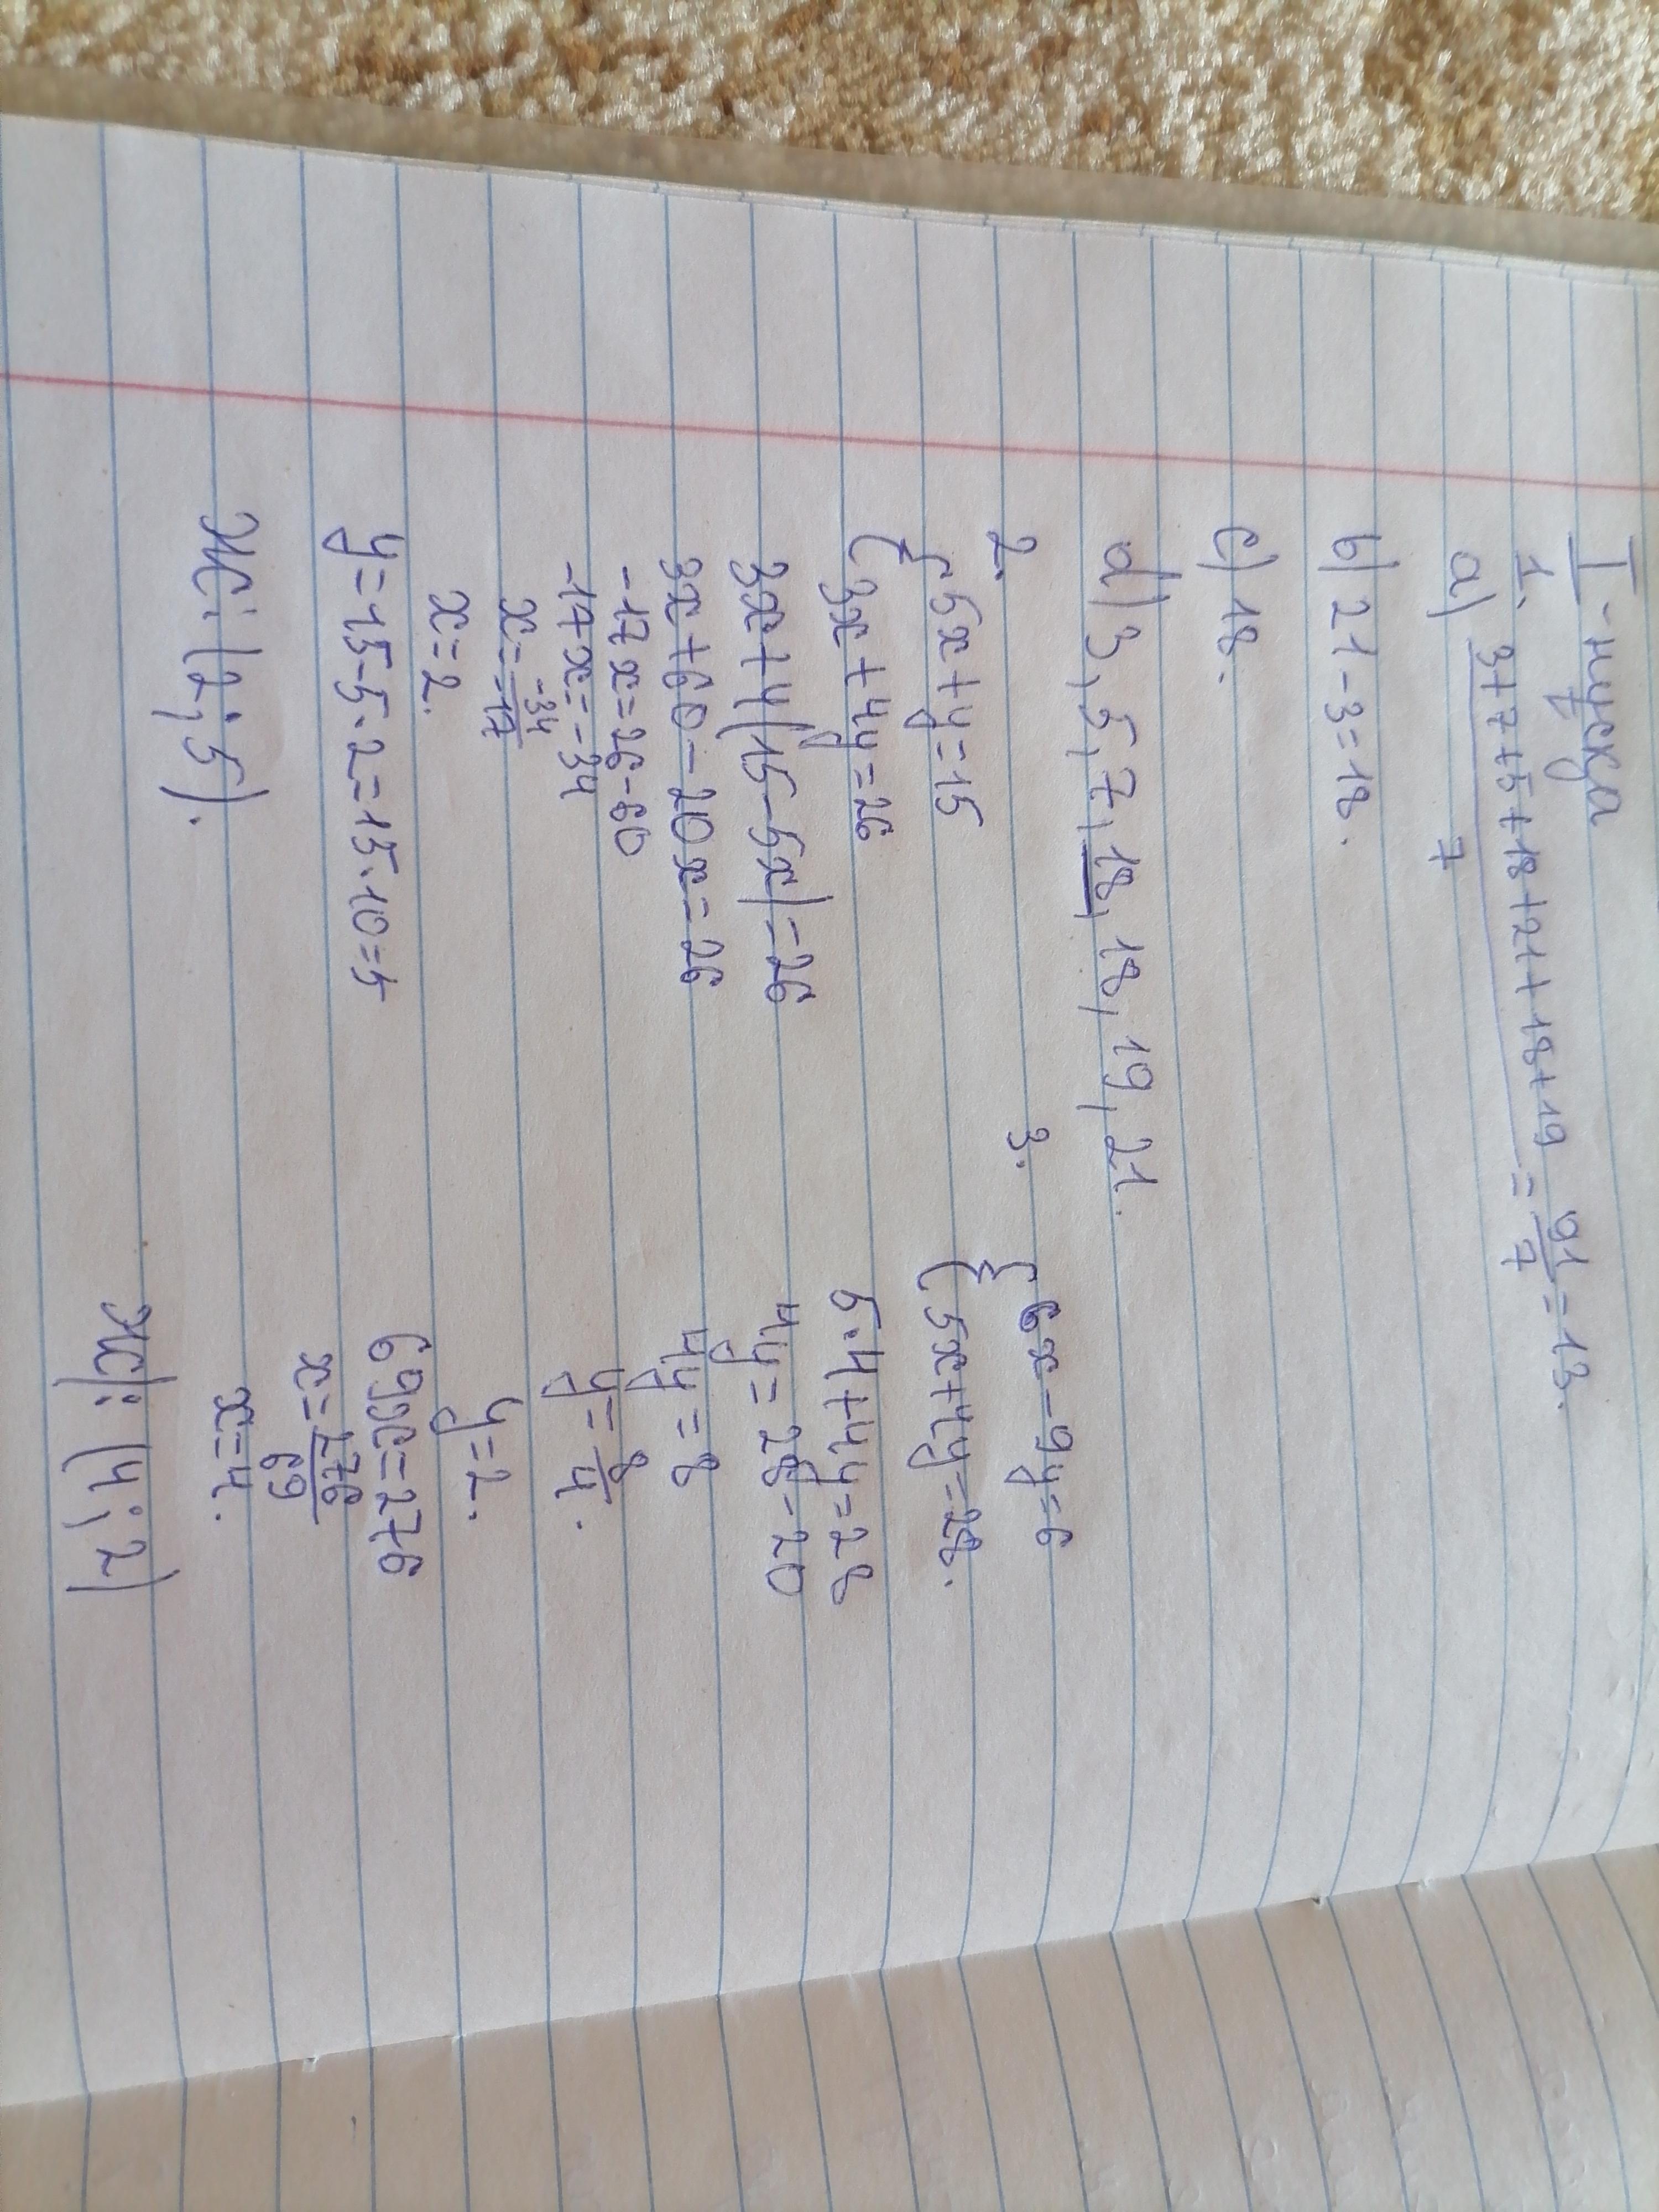 I-нұсқа
1.
a) (3+7+5+18+21+18+19)/7 = 91/7 = 13.
b) 21-3=18.
c) 18.
d) 3, 5, 7, 18, 18, 19, 21.
2.
{5x+y=15
{3x+4y=26
3x+4(15-5x)=26
3x+60-20x=26
-17x=26-60
-17x=-34
x=-34/-17
x=2.
y=15-5·2=15·10=5
Ж: (2; 5).
3.
{6x-9y=6
{5x+4y=28.
5·4+4y=28
4y=28-20
4y=8
y=8/4.
y=2.
69x=276
x=276/69
x=4.
Ж: (4; 2)